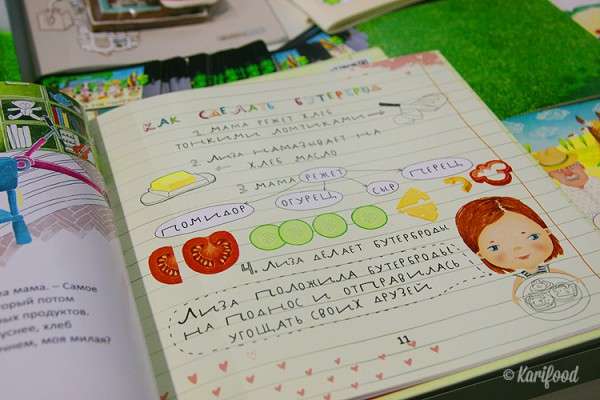 КАК СДЕЛАТЬ БУТЕРБРОД
1 МАМА РЕЖЕТ ХЛЕБ
ТОНКИМИ ЛОМТИКАМИ
2 ЛИЗА НАМАЗЫВАЕТ НА
ХЛЕБ МАСЛО
3 МАМА РЕЖЕТ
ПОМИДОР
ОГУРЕЦ
СЫР
ПЕРЕЦ
4. ЛИЗА ДЕЛАЕТ БУТЕРБРОДЫ
ЛИЗА ПОЛОЖИЛА БУТЕРБРОДЫ
НА ПОДНОС И ОТПРАВИЛАСЬ
УГОЩАТЬ СВОИХ ДРУЗЕЙ
11
мама. – Самое
потом
продуктов.
хлеб
моя милая?
© Karifood